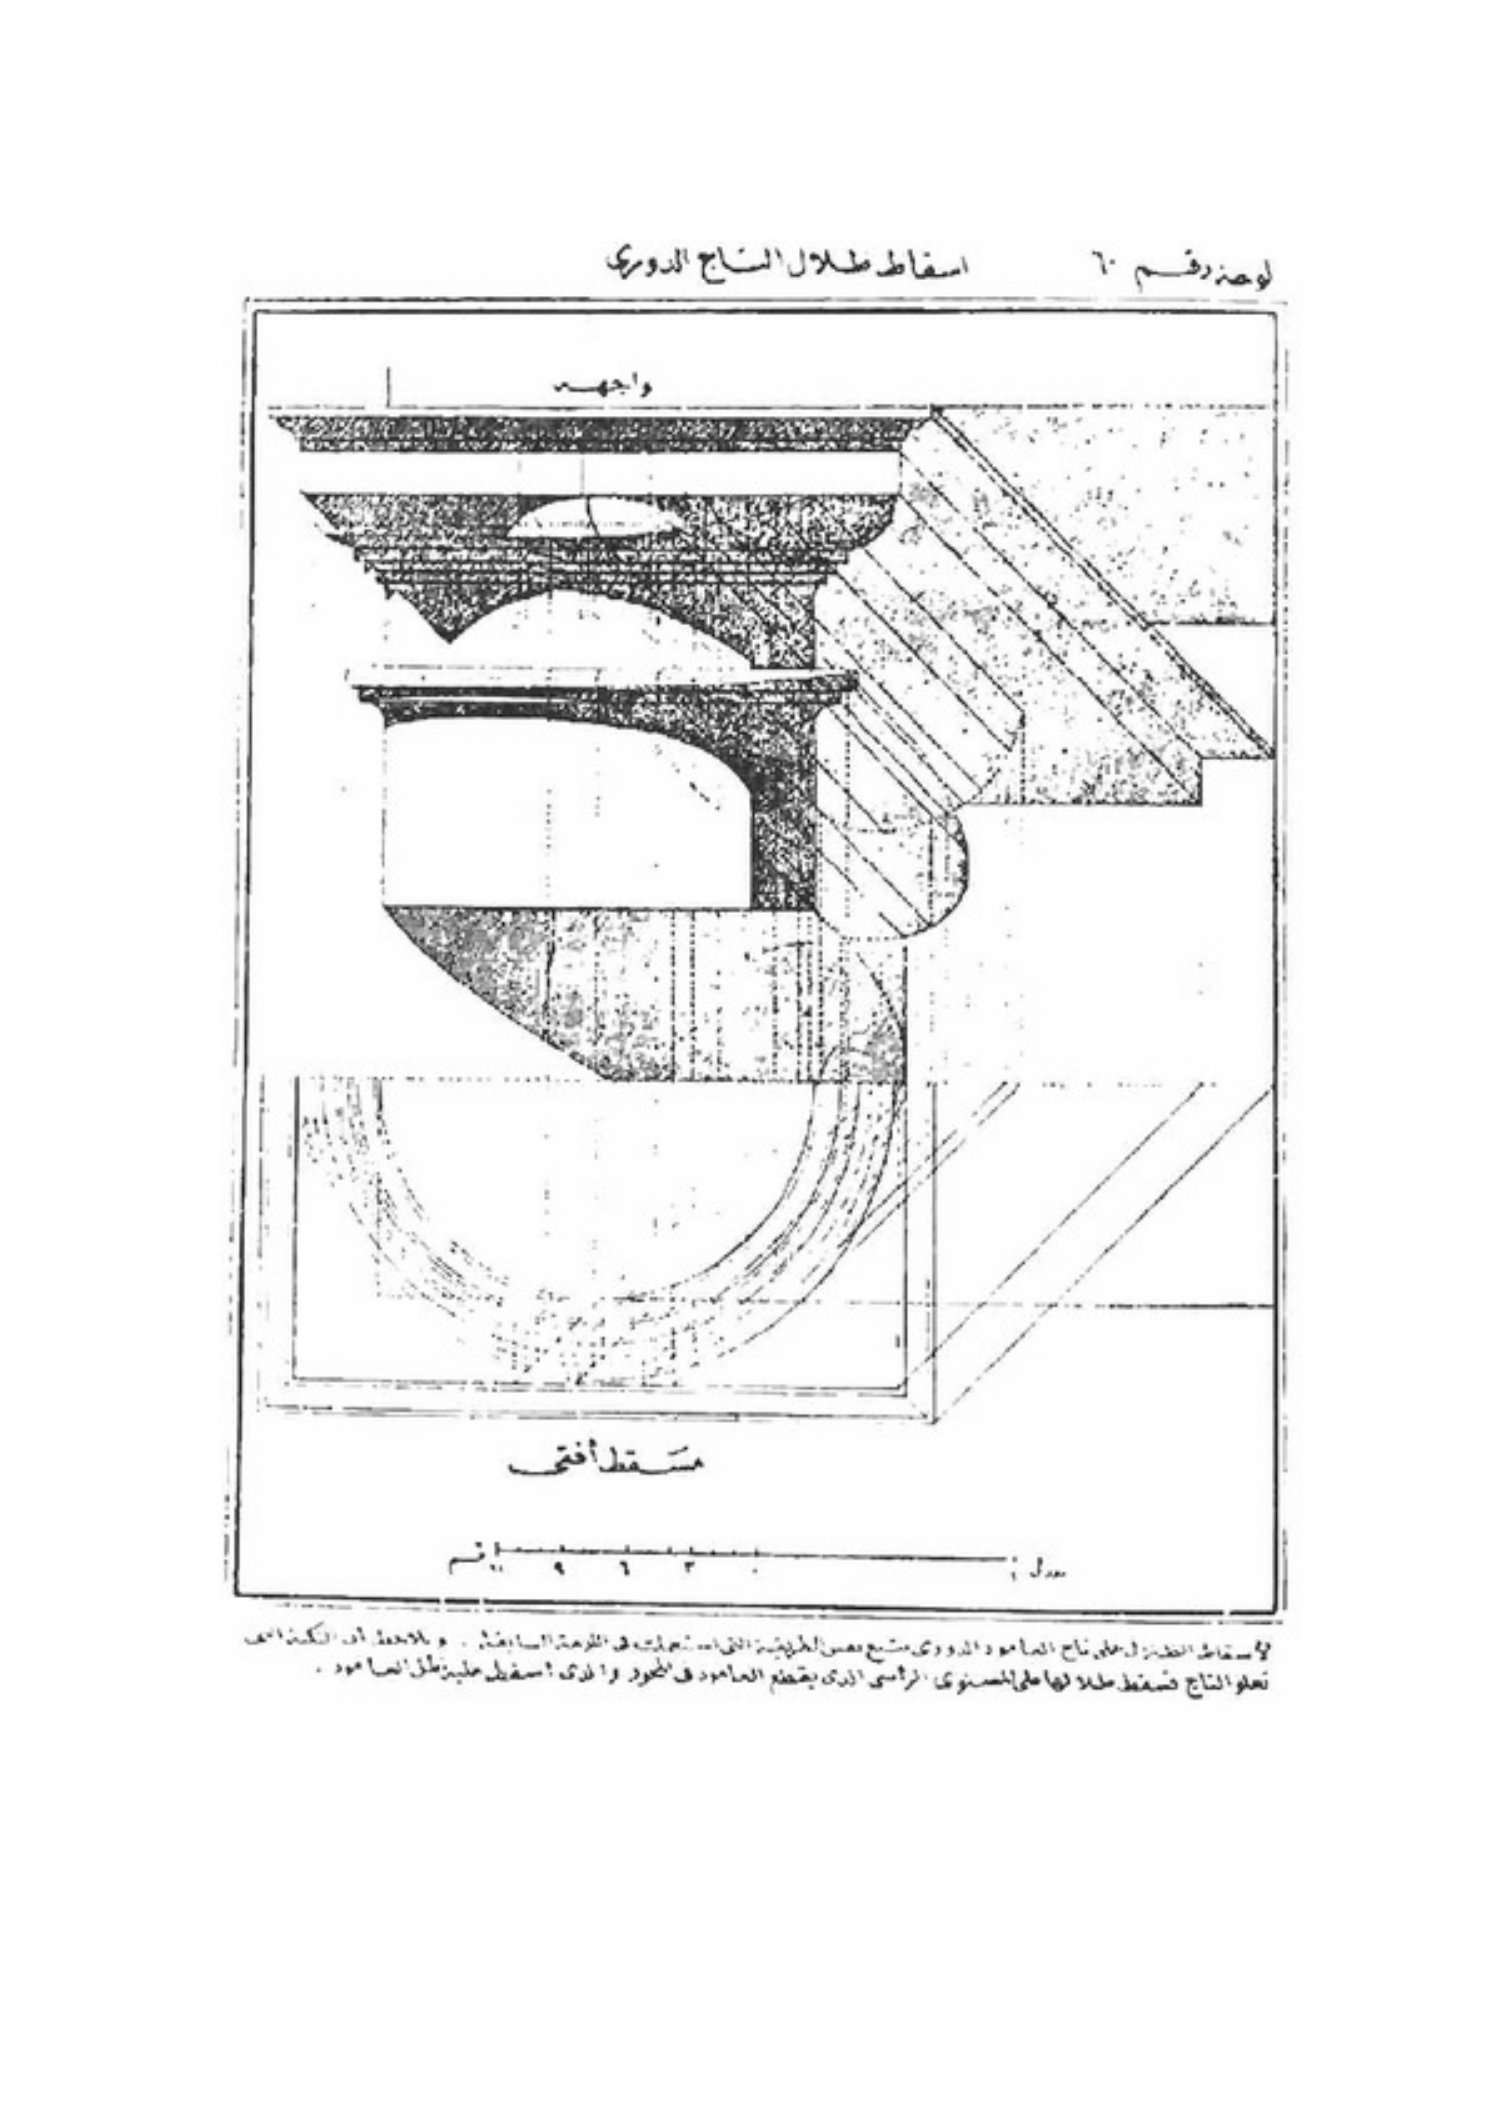 لوحة رقم ٦٠
اسقاط ظلال التاج الدورى
واجهة
مسقط أفقى
٣ ٦ ٩
لاسقاط الظلال على تاج العامود الدورى نتبع نفس الطريقة التى استعملت فى اللوحة السابقة . ويلاحظ أن التكنة التى
تعلو التاج تسقط ظلالها على المستوى الرأسى الذى يقطع العامود فى المحور والذى اسقط عليه ظل العامود .